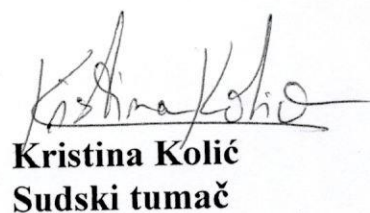 Kristina Kolić
Kristina Kolić
Sudski tumač